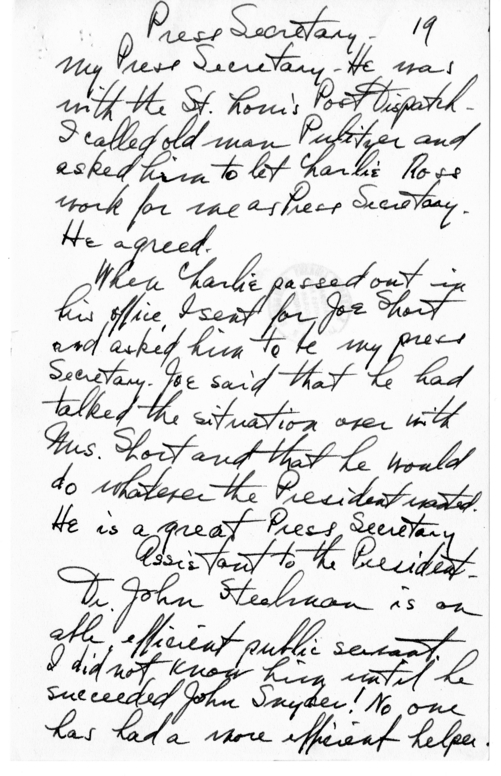 Press Secretary - 19
my Press Secretary - He was
with the St. Louis Post Dispatch -
I called old man Pulitzer and
asked him to let Charlie Ross
work for me as Press Secretary.
He agreed.
When Charlie passed out in
his office, I sent for Joe Short
and asked him to be my press
Secretary. Joe said that he had
talked the situation over with
Mrs. Short and that he would
do whatever the President wanted.
He is a great Press Secretary
Assistant to the President -
Dr. John Steelman is an
able, efficient public servant.
I did not know him until he
succeeded John Snyder! No one
has had a more efficient helper.